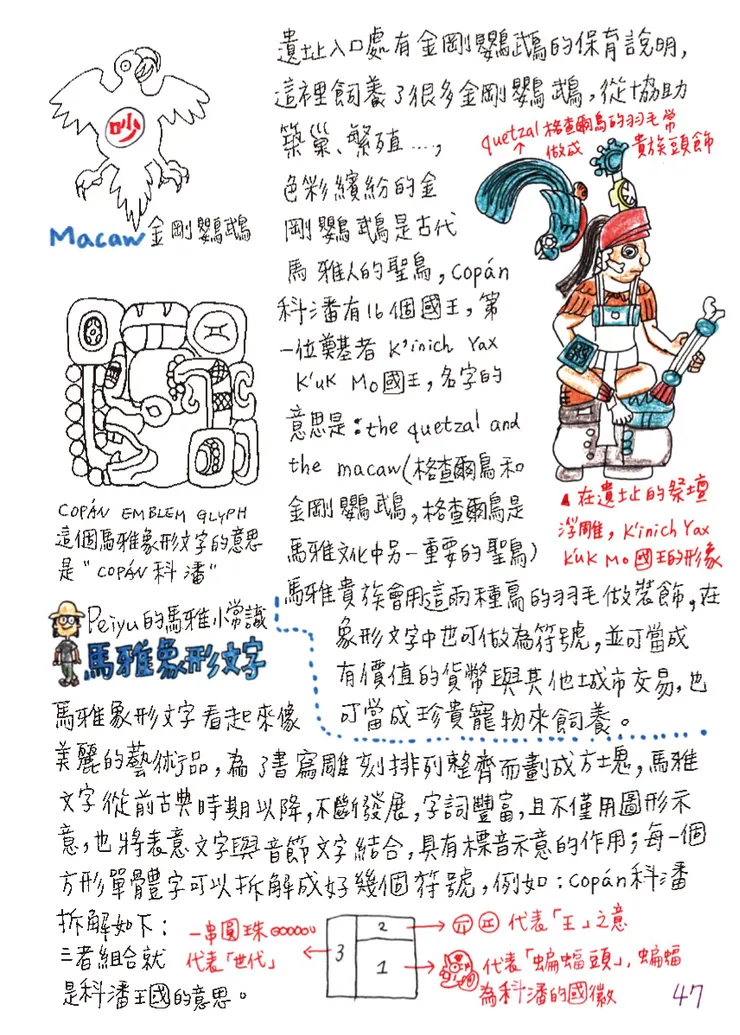 遺址入口處有金剛鸚鵡的保育說明,
這裡飼養了很多金剛鸚鵡,從協助
築巢、繁殖...,
色彩繽紛的金
剛鸚鵡是古代
馬雅人的聖鳥,Copán
科潘有16個國王,第
一位奠基者 K'inich Yax
K'uK Mo國王,名字的
意思是:the quetzal and
the macaw(格查爾鳥和
金剛鸚鵡,格查爾鳥是
馬雅文化中另一重要的聖鳥)
馬雅貴族會用這兩種鳥的羽毛做裝飾,在
象形文字中也可做為符號,並可當成
有價值的貨幣與其他城市交易,也
可當成珍貴寵物來飼養。
吵
Macaw 金剛鸚鵡
quetzal 格查爾鳥的羽毛常
做成 貴族頭飾
▲在遺址的祭壇
浮雕,K'inich Yax
K'uK Mo國王的形象
COPÁN EMBLEM GLYPH
這個馬雅象形文字的意思
是"COPÁN 科潘"
Peiyu的馬雅小常識
馬雅象形文字
馬雅象形文字看起來像
美麗的藝術品,為了書寫雕刻排列整齊而劃成方塊,馬雅
文字從前古典時期以降,不斷發展,字詞豐富,且不僅用圖形示
意,也將表意文字與音節文字結合,具有標音示意的作用;每一個
方形單體字可以拆解成好幾個符號,例如:Copán科潘
拆解如下:
三者組合就
是科潘王國的意思。
一串圓珠
代表「世代」
3
2
1
代表「王」之意
代表「蝙蝠頭」,蝙蝠
為科潘的國徽
47